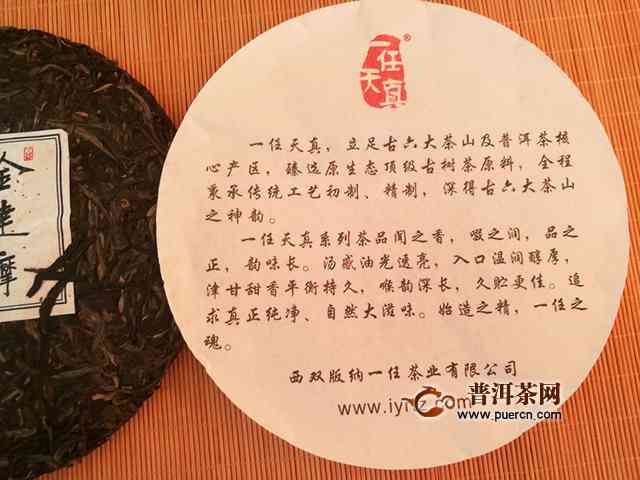 一任天真
®
一任天真，立足古六大茶山及普洱茶核
心产区，臻选原生态顶级古树茶原料，全程
秉承传统工艺初制、精制，深得古六大茶山
之神韵。
一任天真系列茶品闻之香，啜之润，品之
正，韵味长。汤感油光透亮，入口温润醇厚，
津甘甜香平衡持久，喉韵深长，久贮更佳。追
求真正纯净、自然大滋味。始造之精，一任之
魂。
西双版纳一任茶业有限公司
普洱茶网
www.puercn.com
达摩